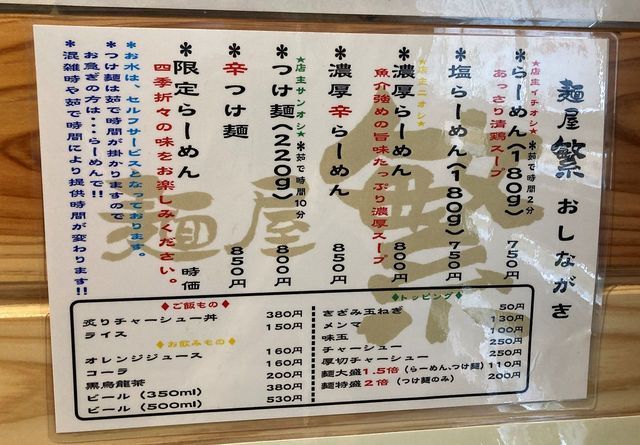 麺屋 繁 おしながき
★店主イチオシ★ ※茹で時間2分
＊らーめん(180g) 750円
あっさり清鶏スープ
＊塩らーめん(180g) 750円
★店主ニオシ★
＊濃厚らーめん 800円
魚介強めの旨味たっぷり濃厚スープ
＊濃厚辛らーめん 850円
★店主サンオシ★ ※茹で時間10分
＊つけ麺(220g) 800円
＊辛つけ麺 850円
＊限定らーめん 時価
四季折々の味をお楽しみください。
＊お水は、セルフサービスとなっております。
＊つけ麺は茹で時間が掛かりますので
お急ぎの方は・・らーめんで!!
＊混雑時や茹で時間により提供時間が変わります!!
麺屋 繁
◆トッピング◆
きざみ玉ねぎ 50円
メンマ 130円
味玉 100円
チャーシュー 250円
厚切チャーシュー 250円
麺大盛1.5倍 (らーめん、つけ麺) 110円
麺特盛2倍 (つけ麺のみ) 200円
◆ご飯もの◆
炙りチャーシュー丼 380円
ライス 150円
◆お飲みもの◆
オレンジジュース 160円
コーラ 160円
黒烏龍茶 200円
ビール (350ml) 380円
ビール (500ml) 530円